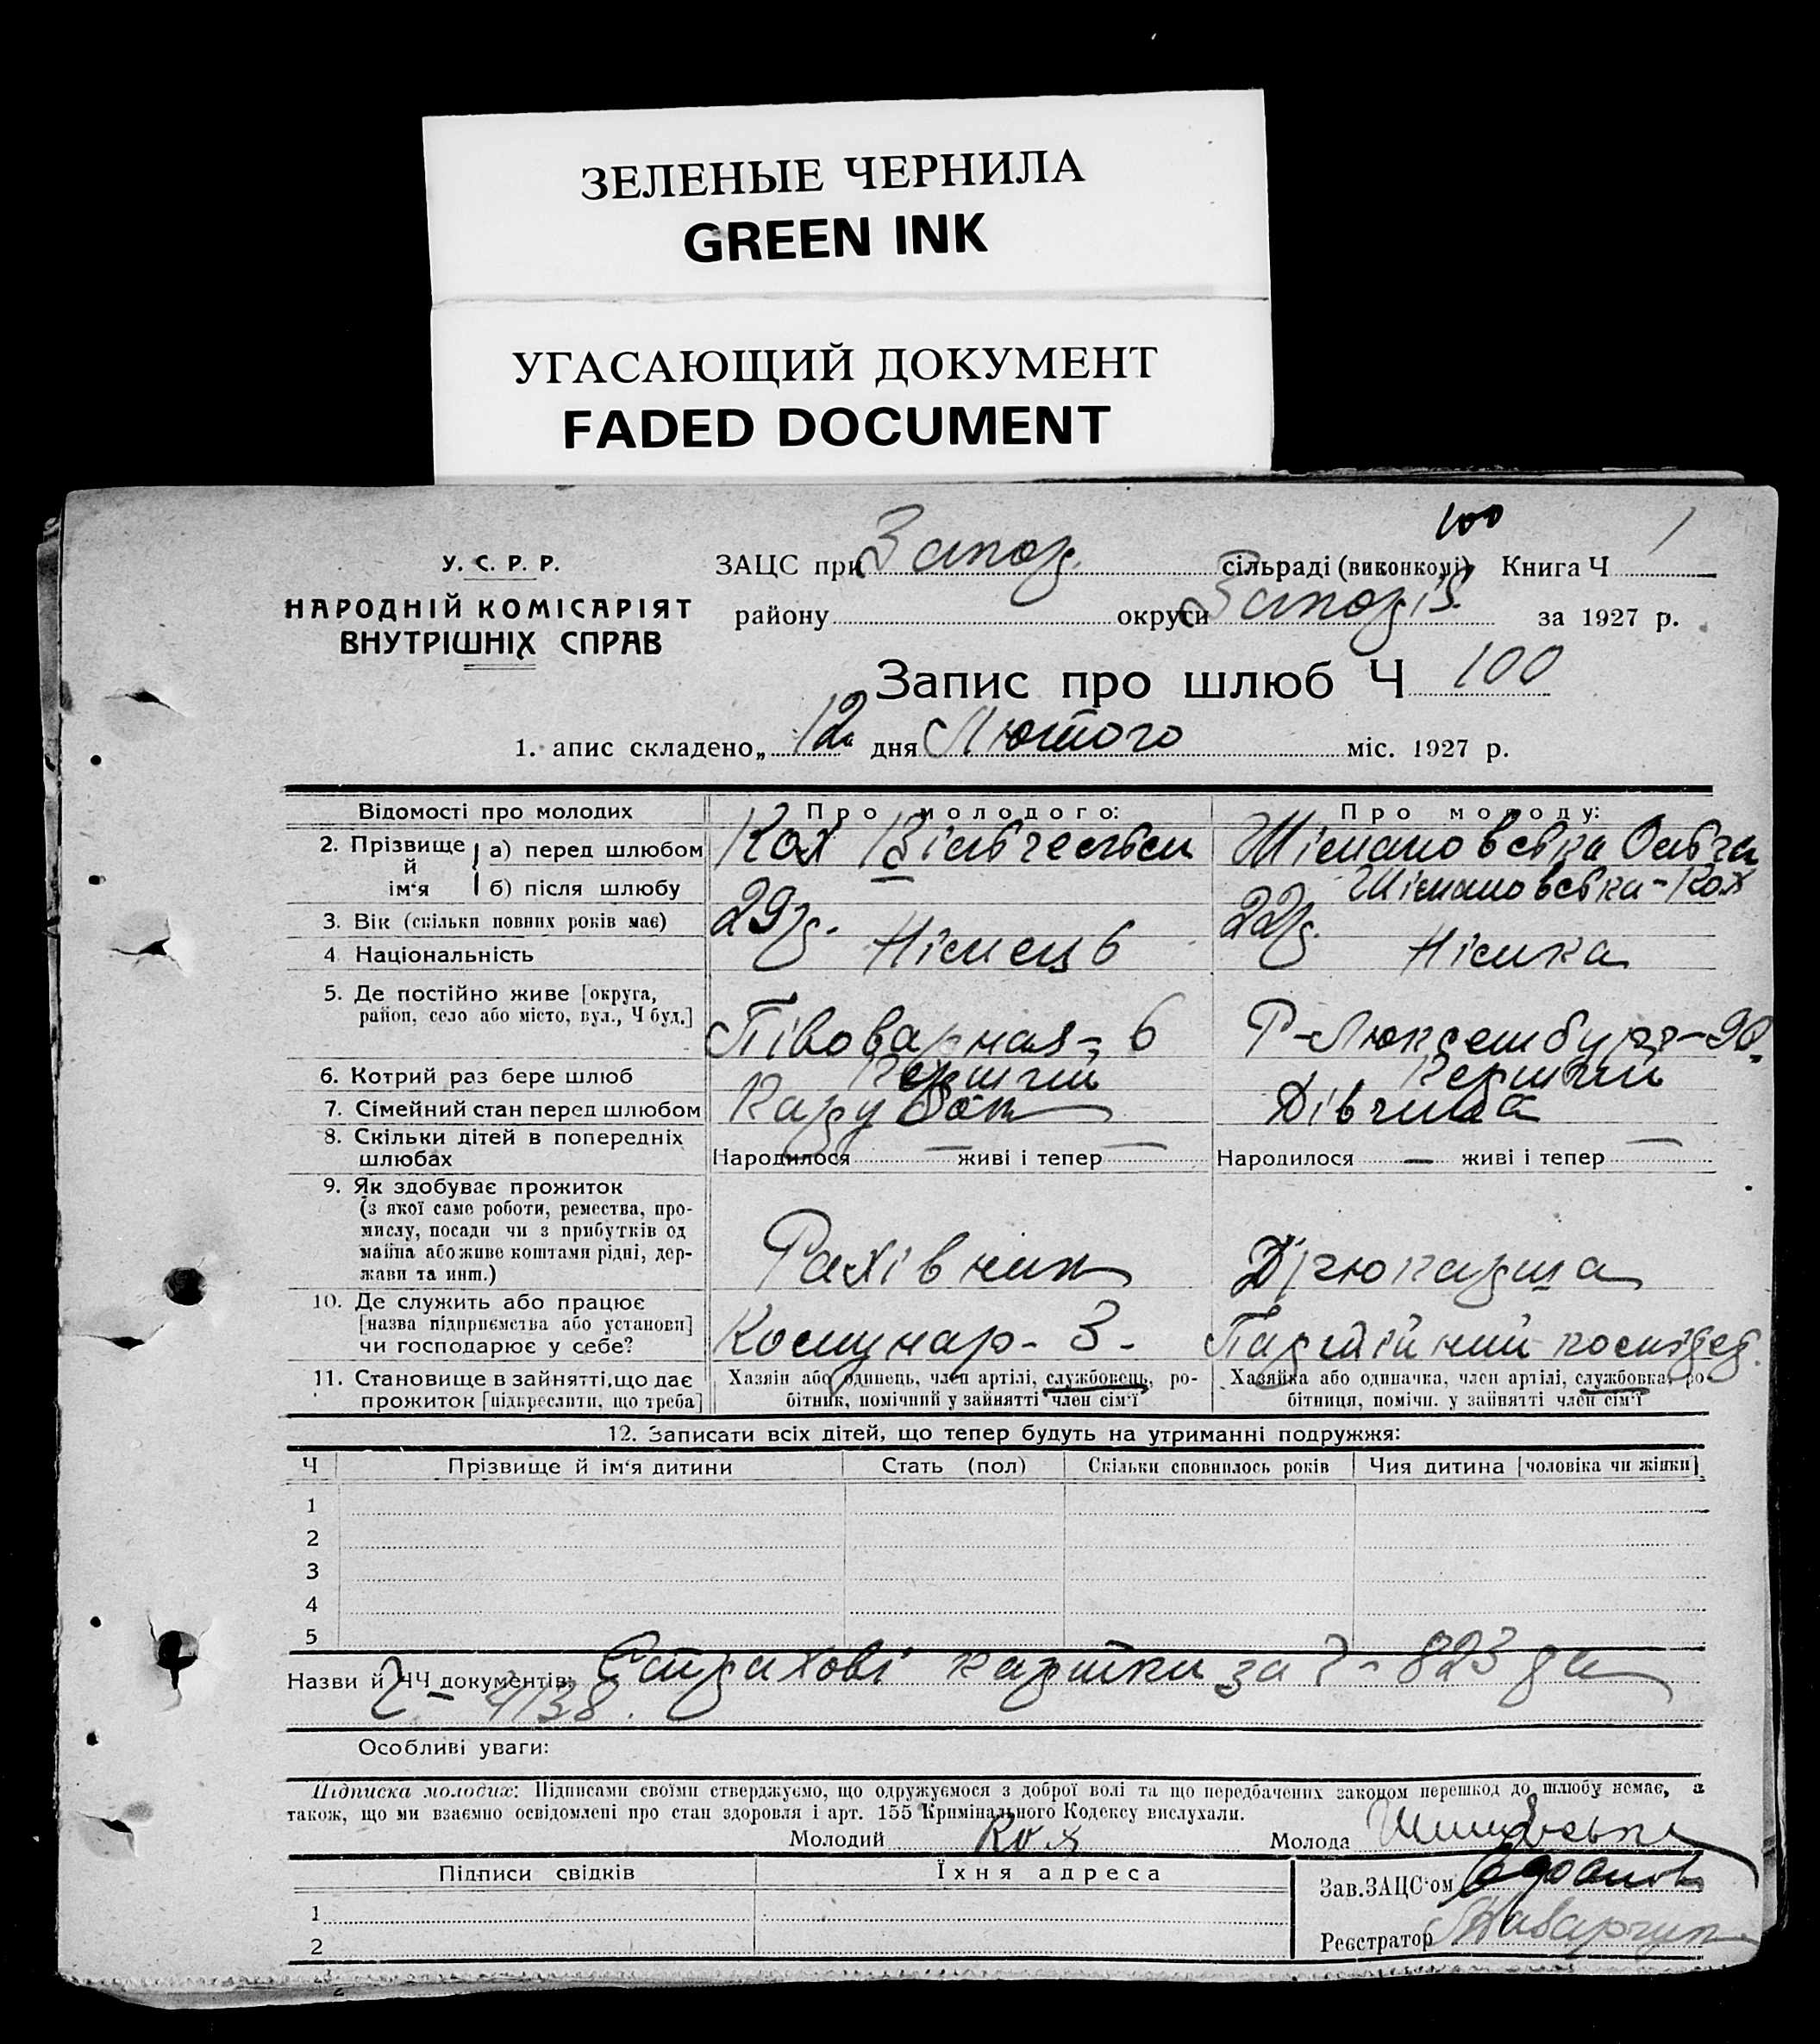 ЗЕЛЕНЫЕ ЧЕРНИЛА
GREEN INK
УГАСАЮЩИЙ ДОКУМЕНТ
FADED DOCUMENT
100
У. С. Р. Р.
НАРОДНІЙ КОМІСАРІЯТ
ВНУТРІШНІХ СПРАВ
ЗАЦС при Запоз. сільраді (виконкомі) Книга Ч 1
району округи Запоріз. за 1927 р.
Запис про шлюб Ч 100
1. апис складено „ 12 дня Лютого міс. 1927 р.
Відомості про молодих Про молодого: Про молоду:
2. Прізвище й ім'я а) перед шлюбом Кох Вільгельм Шімановська Ольга
б) після шлюбу Шімановська-Кох
3. Вік (скільки повних років має) 29 р. 22 р.
4 Національність Німець Німка
5. Де постійно живе [округа,
район, село або місто, вул., Ч буд.] Півоварная - 6 Р-Люксембург-90
6. Котрий раз бере шлюб Перший Перший
7. Сімейний стан перед шлюбом Парубок Дівчина
8. Скільки дітей в попередніх
шлюбах Народилося — живі і тепер — Народилося — живі і тепер —
9. Як здобуває прожиток
(з якої саме роботи, ремества, про-
мислу, посади чи з прибутків од
майна або живе коштами рідні, дер-
жави та инш.) Рахівник Друкарша
10. Де служить або працює
[назва підприємства або установи]
чи господарює у себе? Комунар - 3 -
11. Становище в зайнятті, що дає
прожиток [підкреслити, що треба]
Хазяїн або одинець, член артілі, службовець, ро-
бітник, помічний у зайнятті член сім'ї
Хазяйка або одиначка, член артілі, службовка, ро-
бітниця, помічн. у зайнятті член сім'ї
12. Записати всіх дітей, що тепер будуть на утриманні подружжя:
Ч Прізвище й ім'я дитини Стать (пол) Скільки сповнилось років Чия дитина [чоловіка чи жінки]
1
2
3
4
5
Назви й ЧЧ документів: Страхові картки за Ч - 823 та
Ч - 4138.
Особливі уваги:
Підписка молодих: Підписами своїми стверджуємо, що одружуємося з доброї волі та що передбачених законом перешкод до шлюбу немає, а
також, що ми взаємно освідомлені про стан здоровля і арт. 155 Кримінального Кодексу вислухали.
Молодий Кох Молода
Підписи свідків Їхня адреса Зав. ЗАЦС'ом
1
2 Реєстратор